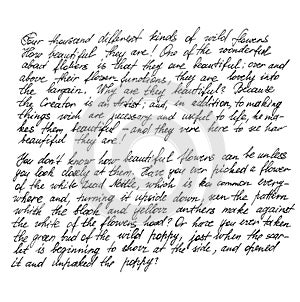 Four thousand different kinds of wild flowers
How beautiful they are! One of the wonderful
about flowers is that they are beautiful: over and
above their flower functions, they are lovely into
the bargain. Why are they beautiful? Because
the Creator is an artist; and, in addition, to making
things wich are necessary and useful to life, he ma-
kes them beautiful - and they were here to see how
beautiful they are!
You don't know how beautiful flowers can be unless
you look closely at them. Have you ever picked a flower
of the white Dead Nettle, which is so common every-
where and, turning it upside down, seen the pattern
which the black and yellow anthers make against
the white of the flower's hood? Or have you ever taken
the green bud of the wild poppy, just when the scar-
let is beginning to show at the side, and opened
it and unpacked the poppy?